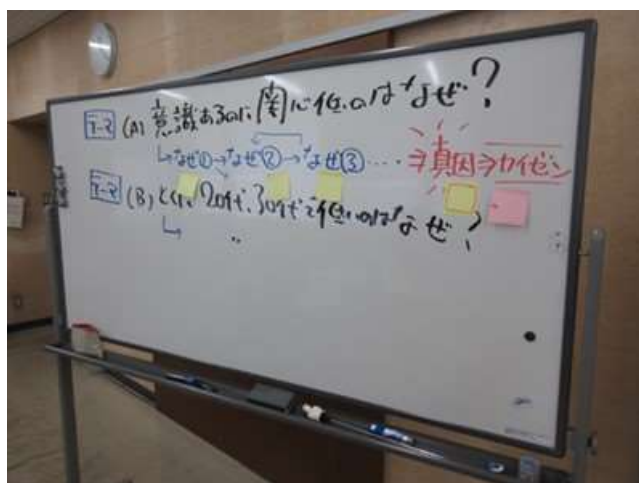 テーマ (A) 意識あるのに関心低いのはなぜ?
↳なぜ①→なぜ②→なぜ③ ‥‥ ⇒真因⇒カイゼン
テーマ (B) とくに20代、30代で低いのはなぜ?
↳ 〃